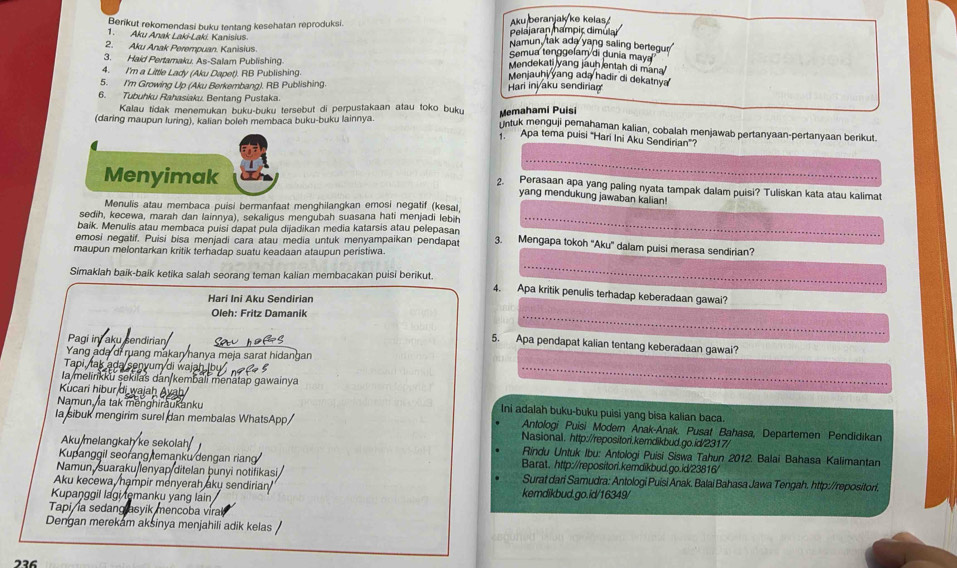 Berikut rekomendasi buku tentang kesehatan reproduksi.
1. Aku Anak Laki-Laki. Kanisius.
2. Aku Anak Perempuan. Kanisius.
3. Haid Pertamaku. As-Salam Publishing.
4. I'm a Little Lady (Aku Dapet). RB Publishing.
5. I'm Growing Up (Aku Berkembang). RB Publishing.
6. Tubuhku Rahasiaku. Bentang Pustaka.
Kalau tidak menemukan buku-buku tersebut di perpustakaan atau toko buku
(daring maupun luring), kalian boleh membaca buku-buku lainnya.
Menyimak
Menulis atau membaca puisi bermanfaat menghilangkan emosi negatif (kesal,
sedih, kecewa, marah dan lainnya), sekaligus mengubah suasana hati menjadi lebih
baik. Menulis atau membaca puisi dapat pula dijadikan media katarsis atau pelepasan
emosi negatif. Puisi bisa menjadi cara atau media untuk menyampaikan pendapat
maupun melontarkan kritik terhadap suatu keadaan ataupun peristiwa.
Simaklah baik-baik ketika salah seorang teman kalian membacakan puisi berikut.
Hari Ini Aku Sendirian
Oleh: Fritz Damanik
Pagi ini aku sendirian
Yang ada di ruang makan hanya meja sarat hidangan
Tapi, tak ada senyum di wajah Ibu
Ia melirikku sekilas dan kembali menatap gawainya
Kucari hibur di wajah Ayah
Namun, ia tak menghiraukanku
Ia sibuk mengirim surel dan membalas WhatsApp
Aku melangkah ke sekolah
Kupanggil seorang temanku dengan riang
Namun, suaraku lenyap ditelan bunyi notifikasi
Aku kecewa, hampir menyerah aku sendirian
Kupanggil lagi temanku yang lain
Tapi, ia sedang asyik mencoba viral
Dengan merekam aksinya menjahili adik kelas
236
Aku beranjak ke kelas
Pelajaran hampir dimulai
Namun, tak ada yang saling bertegur
Semua tenggelam di dunia maya
Mendekati yang jauh entah di mana
Menjauhi yang ada hadir di dekatnya
Hari ini aku sendirian
Memahami Puisi
Untuk menguji pemahaman kalian, cobalah menjawab pertanyaan-pertanyaan berikut.
1. Apa tema puisi "Hari Ini Aku Sendirian"?
2. Perasaan apa yang paling nyata tampak dalam puisi? Tuliskan kata atau kalimat
yang mendukung jawaban kalian!
3. Mengapa tokoh "Aku" dalam puisi merasa sendirian?
4. Apa kritik penulis terhadap keberadaan gawai?
5. Apa pendapat kalian tentang keberadaan gawai?
Ini adalah buku-buku puisi yang bisa kalian baca.
• Antologi Puisi Modern Anak-Anak. Pusat Bahasa, Departemen Pendidikan
Nasional. http://repositori.kemdikbud.go.id/2317/
• Rindu Untuk Ibu: Antologi Puisi Siswa Tahun 2012. Balai Bahasa Kalimantan
Barat. http://repositori.kemdikbud.go.id/23816/
• Surat dari Samudra: Antologi Puisi Anak. Balai Bahasa Jawa Tengah. http://repositori.
kemdikbud.go.id/16349/